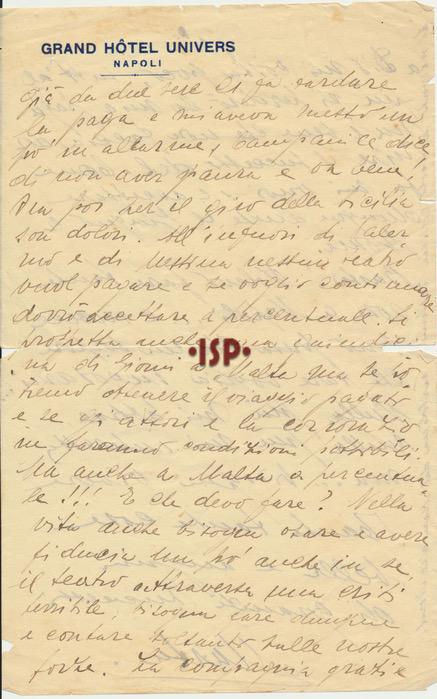 GRAND HÔTEL UNIVERS
NAPOLI
già da due sere si fa tardare
la paga e mi aveva messo un
po' in allarme, Campanile dice
di non aver paura e va bene!
Ma poi per il giro della Sicilia
son dolori. All'infuori di Paler
mo e di Messina nessun teatro
vuol pagare e se voglio continuare
dovrò accettare a percentuale. Si
anche una quindici
na di giorni a Malta ma se io
ottenere il viaggio pagato
e se gli attori e la
ne faranno condizioni possibili.
Ma anche a Malta a percentua
le!!! E che devo fare? Nella
vita anche bisogna osare e avere
fiducia un po' anche in se,
il teatro attraversa una crisi
terribile, bisogna fare dunque
e contare soltanto sulle nostre
forze. La compagnia grazie
•ISP•